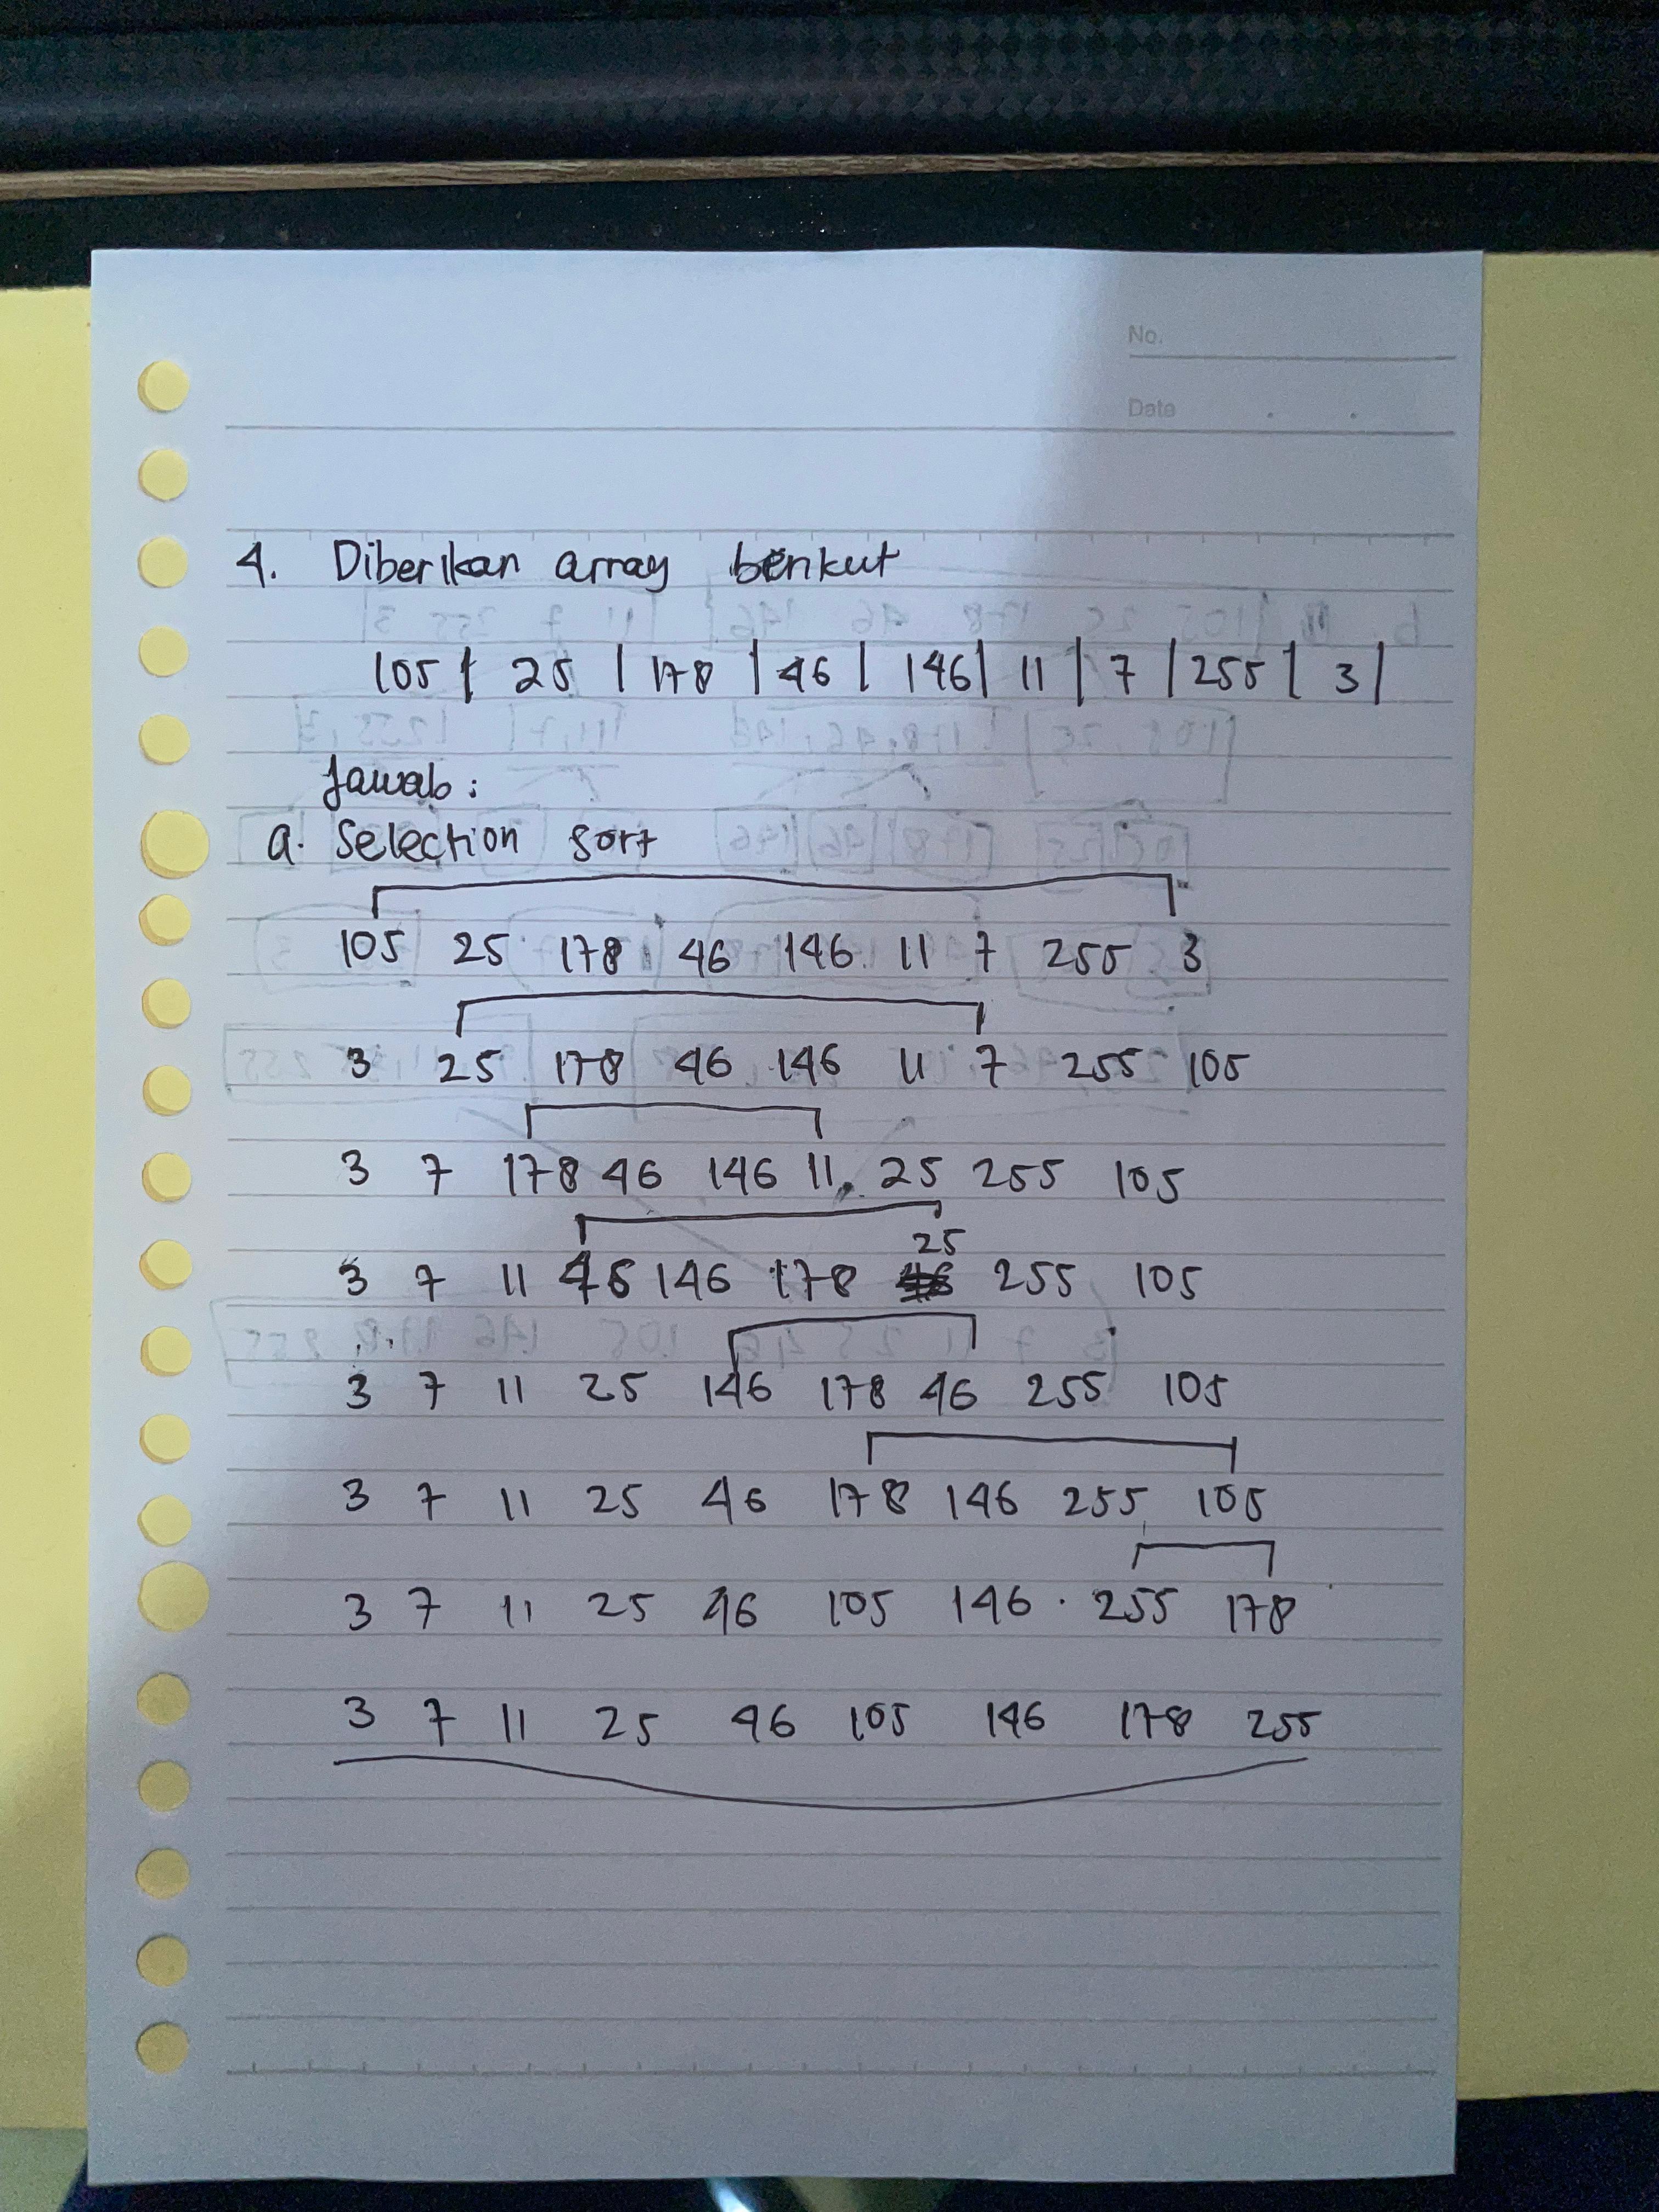 No.
Date
4. Diberikan array berikut
105 | 25 | 178 | 46 | 146 | 11 | 7 | 255 | 3 |
Jawab :
a. Selection sort
105 25 178 46 146 11 7 255 3
3 25 178 46 146 11 7 255 105
3 7 178 46 146 11 25 255 105
25
3 7 11 46 146 178 255 105
3 7 11 25 146 178 46 255 105
3 7 11 25 46 178 146 255 105
3 7 11 25 46 105 146 255 178
3 7 11 25 46 105 146 178 255